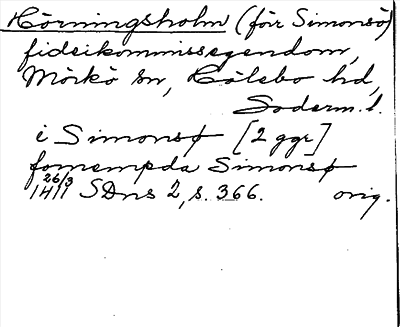 Hörningsholm (förr Simonsö)
fideikommissegendom,
Mörkö sn, Hölebo hd,
Söderm. l.
i Simonsø [2 ggr]
fornempda Simonsø
26/3 1411 SDns 2, s. 366. orig.